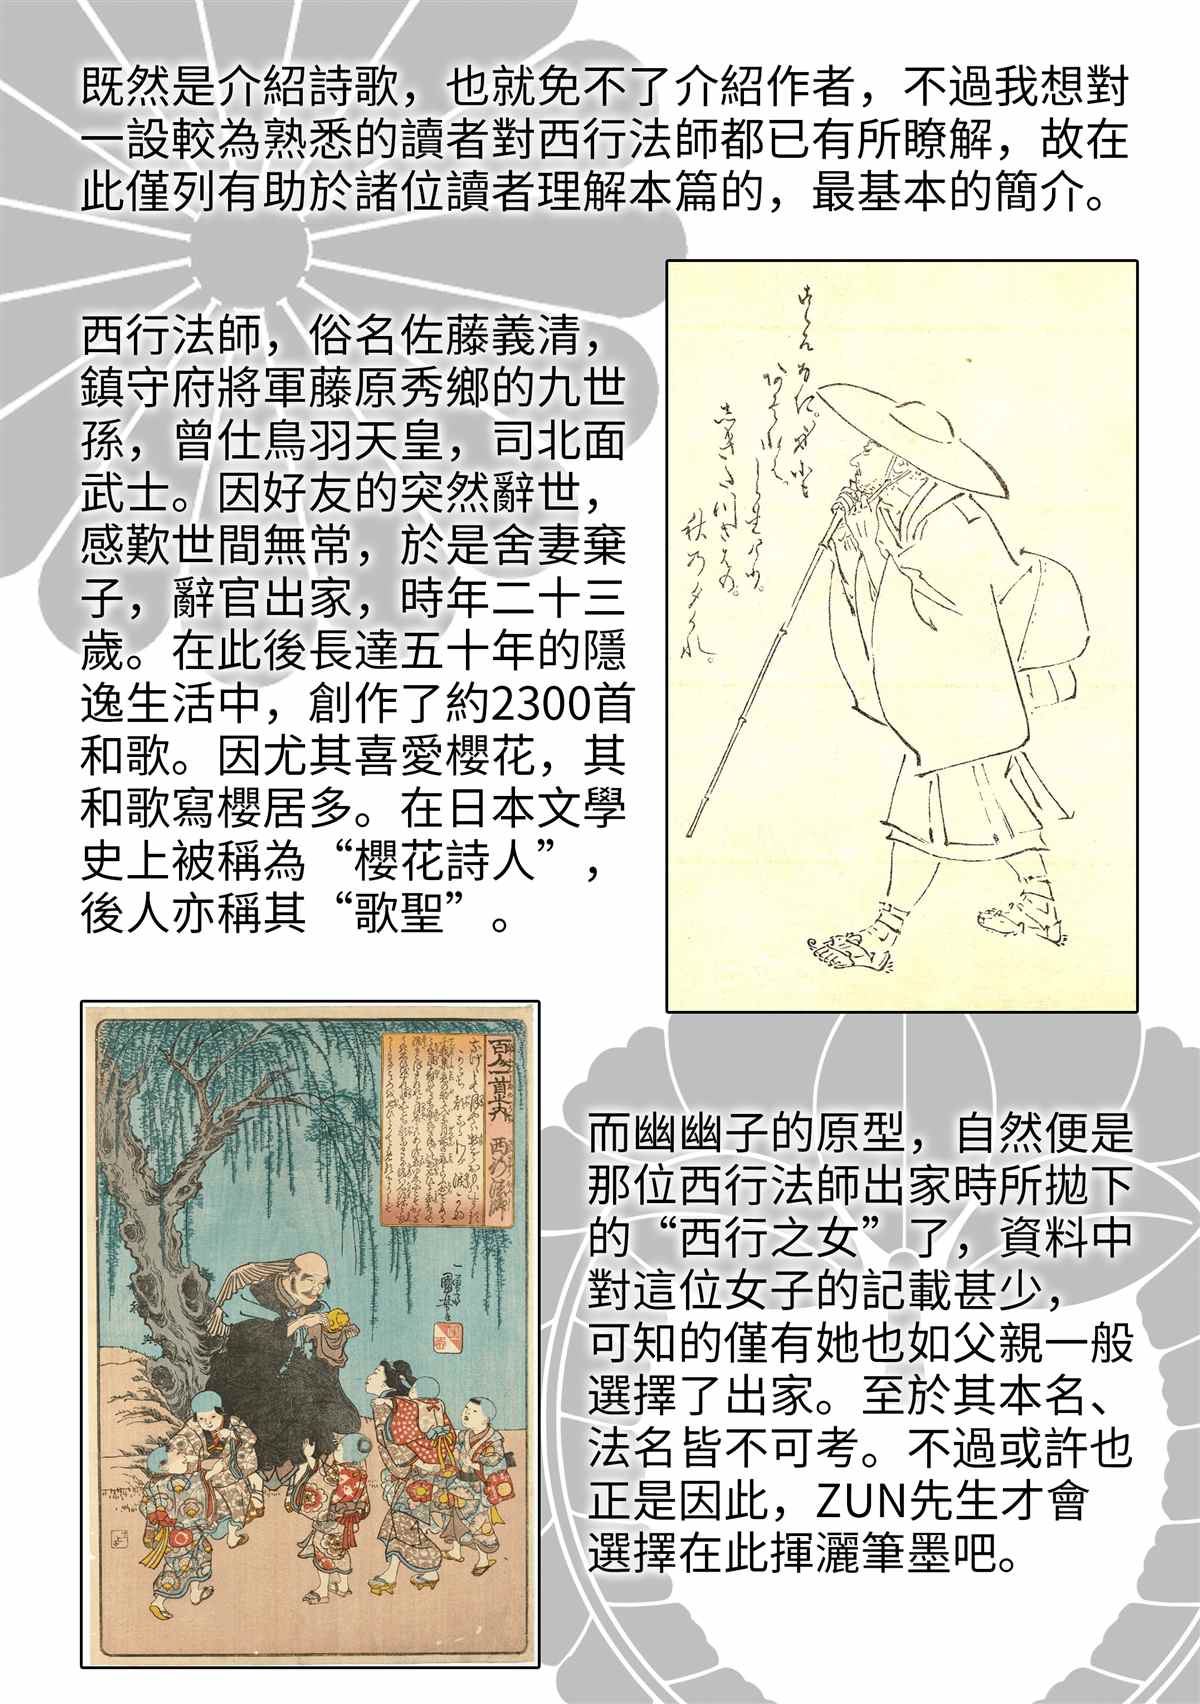 既然是介紹詩歌，也就免不了介紹作者，不過我想對
一設較為熟悉的讀者對西行法師都已有所瞭解，故在
此僅列有助於諸位讀者理解本篇的，最基本的簡介。
西行法師，俗名佐藤義清，
鎮守府將軍藤原秀鄉的九世
孫，曾仕鳥羽天皇，司北面
武士。因好友的突然辭世，
感歎世間無常，於是舍妻棄
子，辭官出家，時年二十三
歲。在此後長達五十年的隱
逸生活中，創作了約2300首
和歌。因尤其喜愛櫻花，其
和歌寫櫻居多。在日本文學
史上被稱為“櫻花詩人”，
後人亦稱其“歌聖”。
百人一首之八十六
西行法師
而幽幽子的原型，自然便是
那位西行法師出家時所拋下
的“西行之女”了，資料中
對這位女子的記載甚少，
可知的僅有她也如父親一般
選擇了出家。至於其本名、
法名皆不可考。不過或許也
正是因此，ZUN先生才會
選擇在此揮灑筆墨吧。